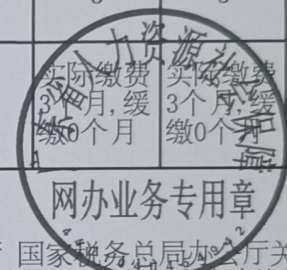 实际缴费
3个月,缓
缴0个月
实际缴费
3个月,缓
缴0个月
省人力资源社会保障
网办业务专用章
国家税务总局办公厅关